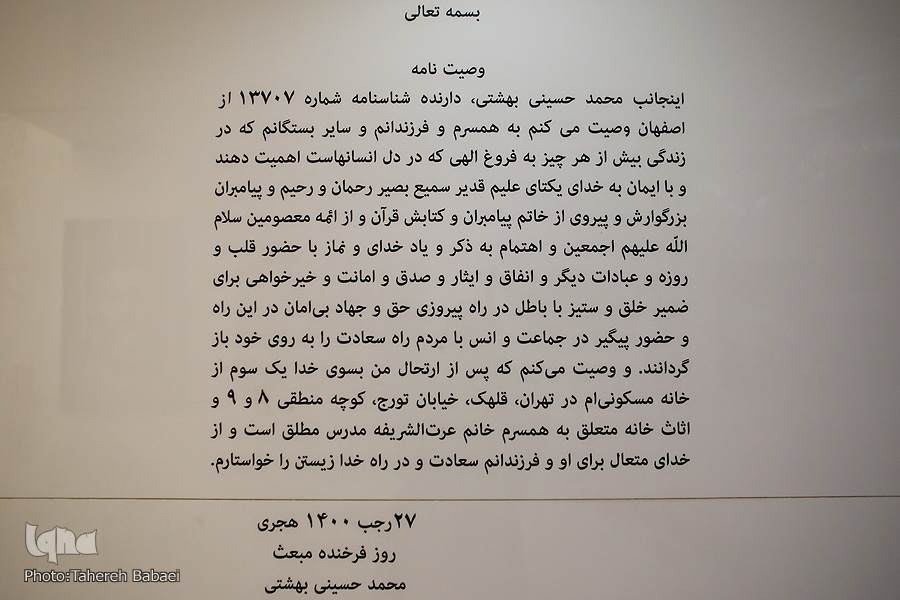 بسمه تعالی
وصیت نامه
اینجانب محمد حسینی بهشتی، دارنده شناسنامه شماره ۱۳۷۰۷ از
اصفهان وصیت می کنم به همسرم و فرزندانم و سایر بستگانم که در
زندگی بیش از هر چیز به فروغ الهی که در دل انسانهاست اهمیت دهند
و با ایمان به خدای یکتای علیم قدیر سمیع بصیر رحمان و رحیم و پیامبران
بزرگوارش و پیروی از خاتم پیامبران و کتابش قرآن و از ائمه معصومین سلام
اللّه علیهم اجمعین و اهتمام به ذکر و یاد خدای و نماز با حضور قلب و
روزه و عبادات دیگر و انفاق و ایثار و صدق و امانت و خیرخواهی برای
ضمیر خلق و ستیز با باطل در راه پیروزی حق و جهاد بی‌امان در این راه
و حضور پیگیر در جماعت و انس با مردم راه سعادت را به روی خود باز
گردانند. و وصیت می‌کنم که پس از ارتحال من بسوی خدا یک سوم از
خانه مسکونی‌ام در تهران، قلهک، خیابان تورج، کوچه منطقی ۸ و ۹ و
اثاث خانه متعلق به همسرم خانم عرت‌الشریفه مدرس مطلق است و از
خدای متعال برای او و فرزندانم سعادت و در راه خدا زیستن را خواستارم.
۲۷ رجب ۱۴۰۰ هجری
روز فرخنده مبعث
محمد حسینی بهشتی
iqna
Photo:Tahereh Babaei